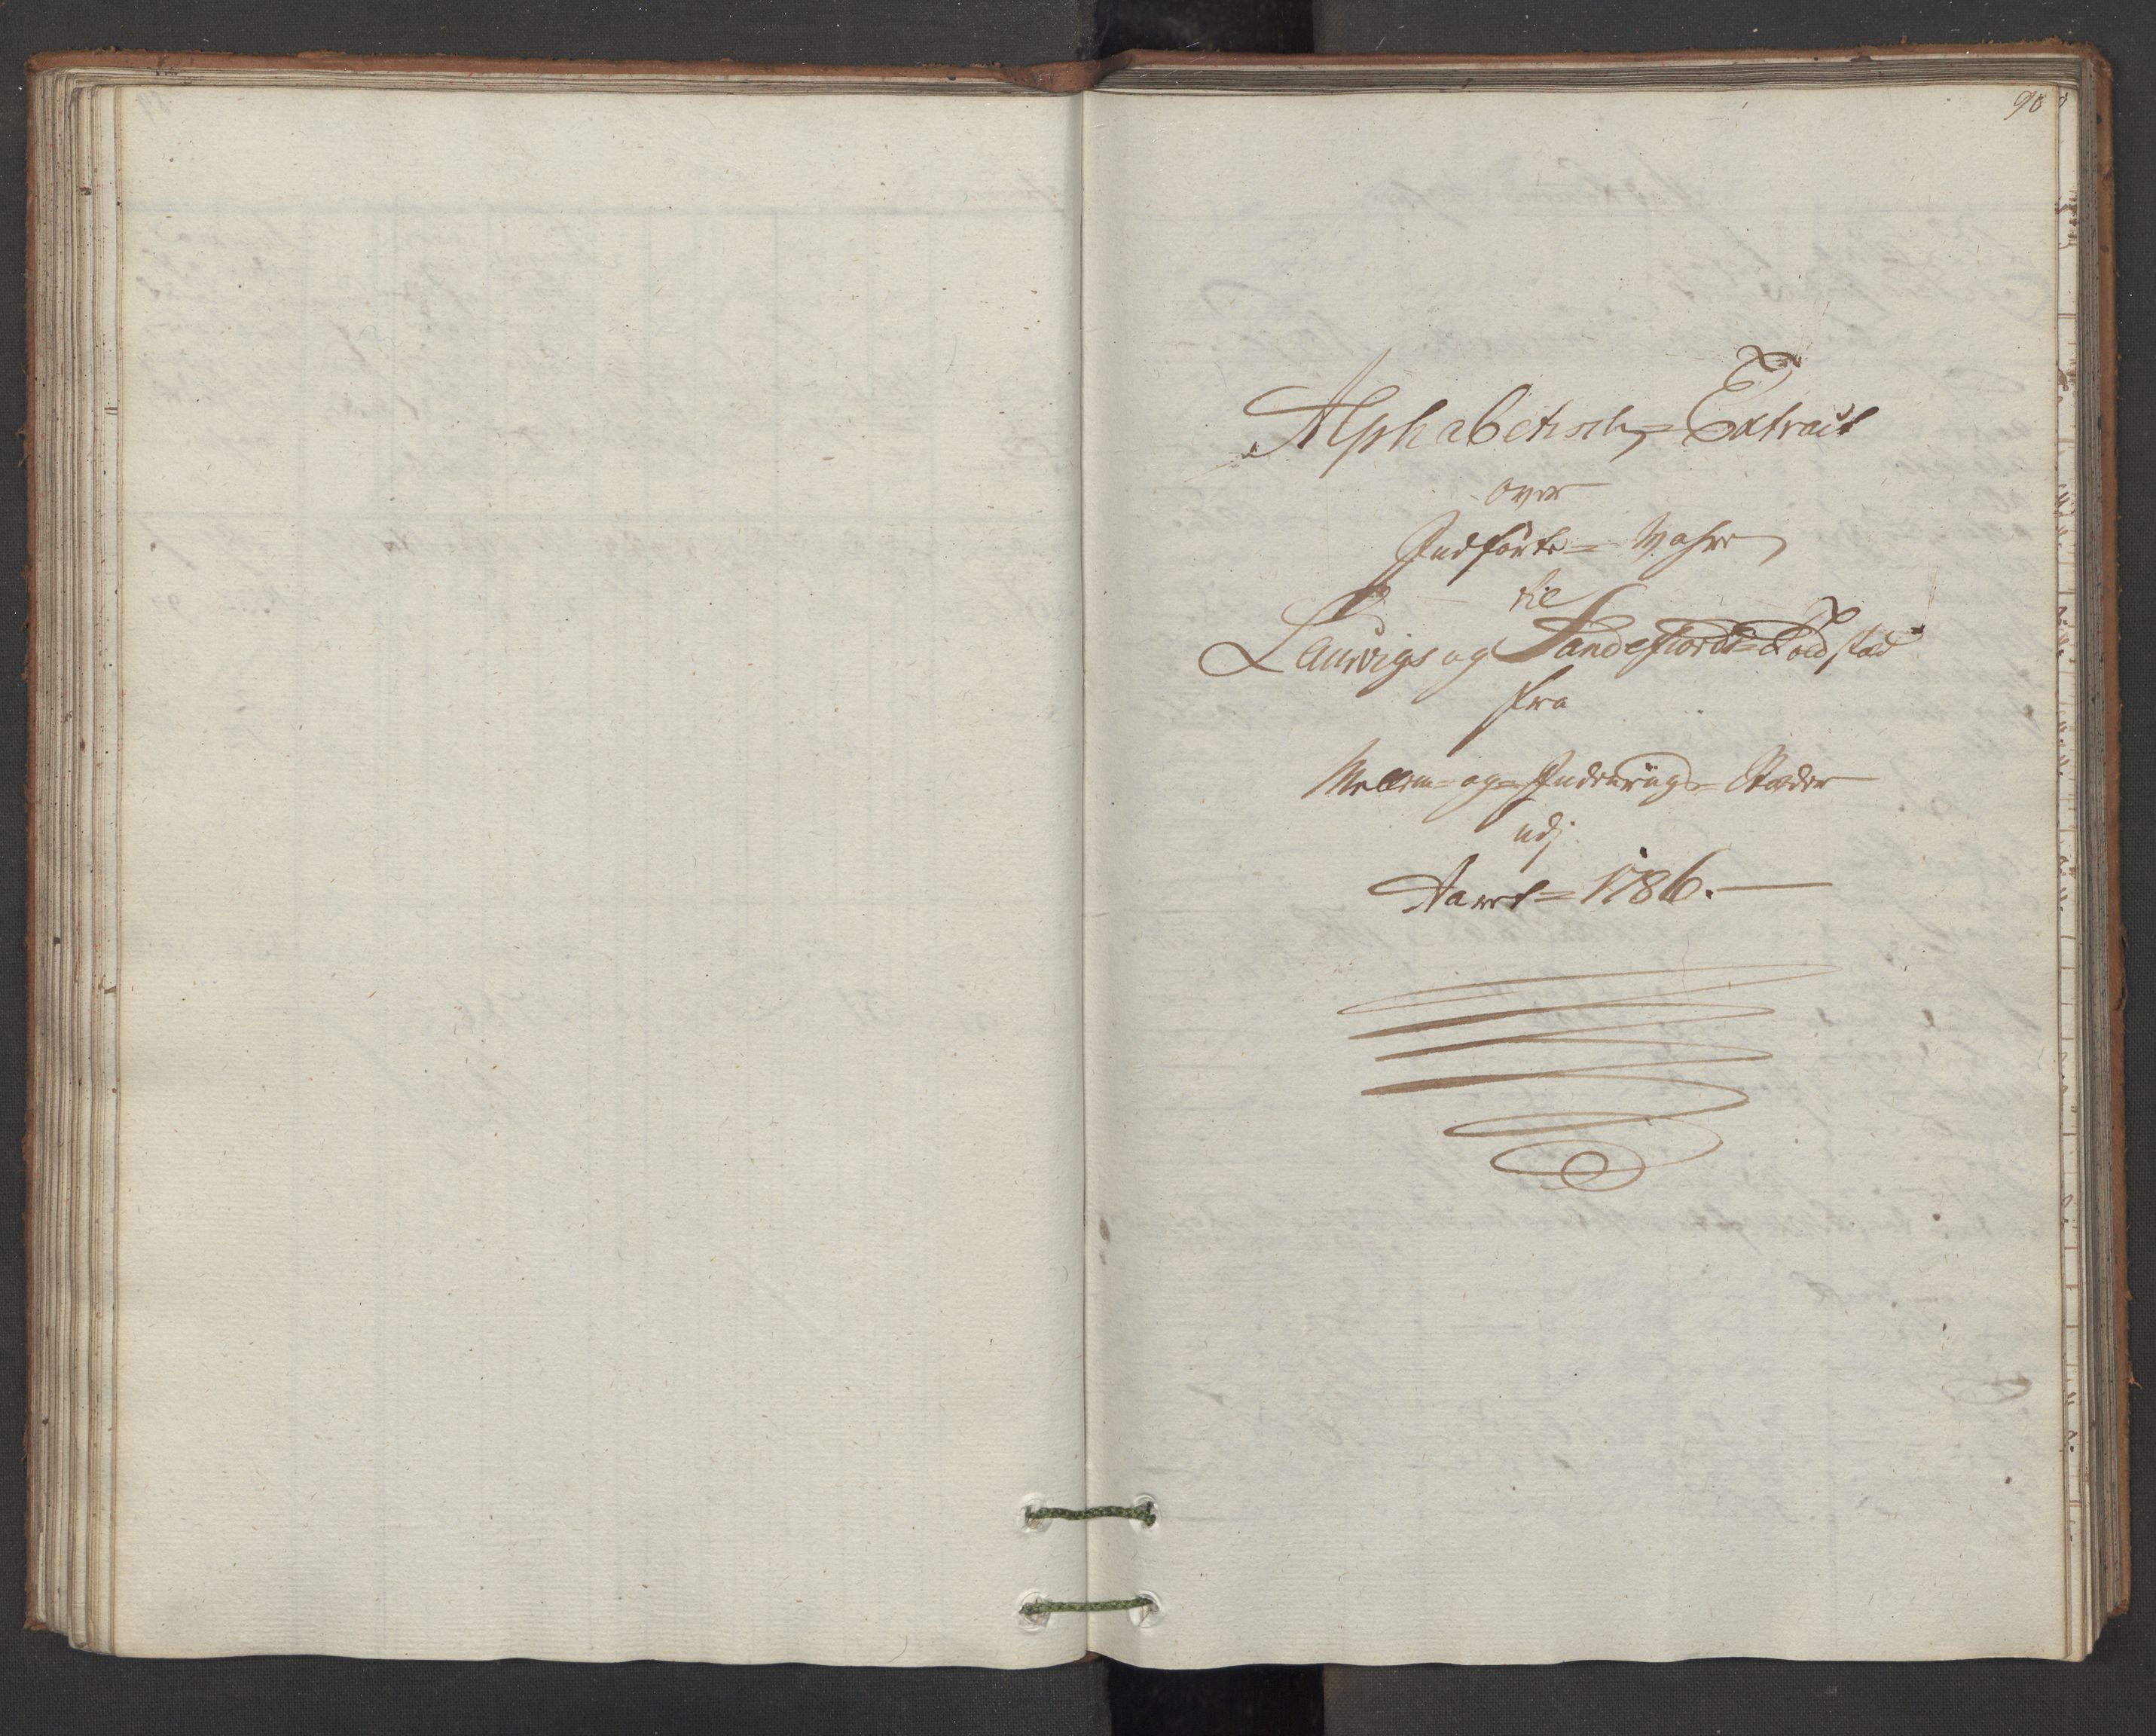 90
Alphabetisch = Extract
over
Indførte = Vahre
til
Laurvigs og Sandefiords = Toldstæd
fra
Mellem = og = Indenrigs = Stæder
udj
Aaret = 1786.